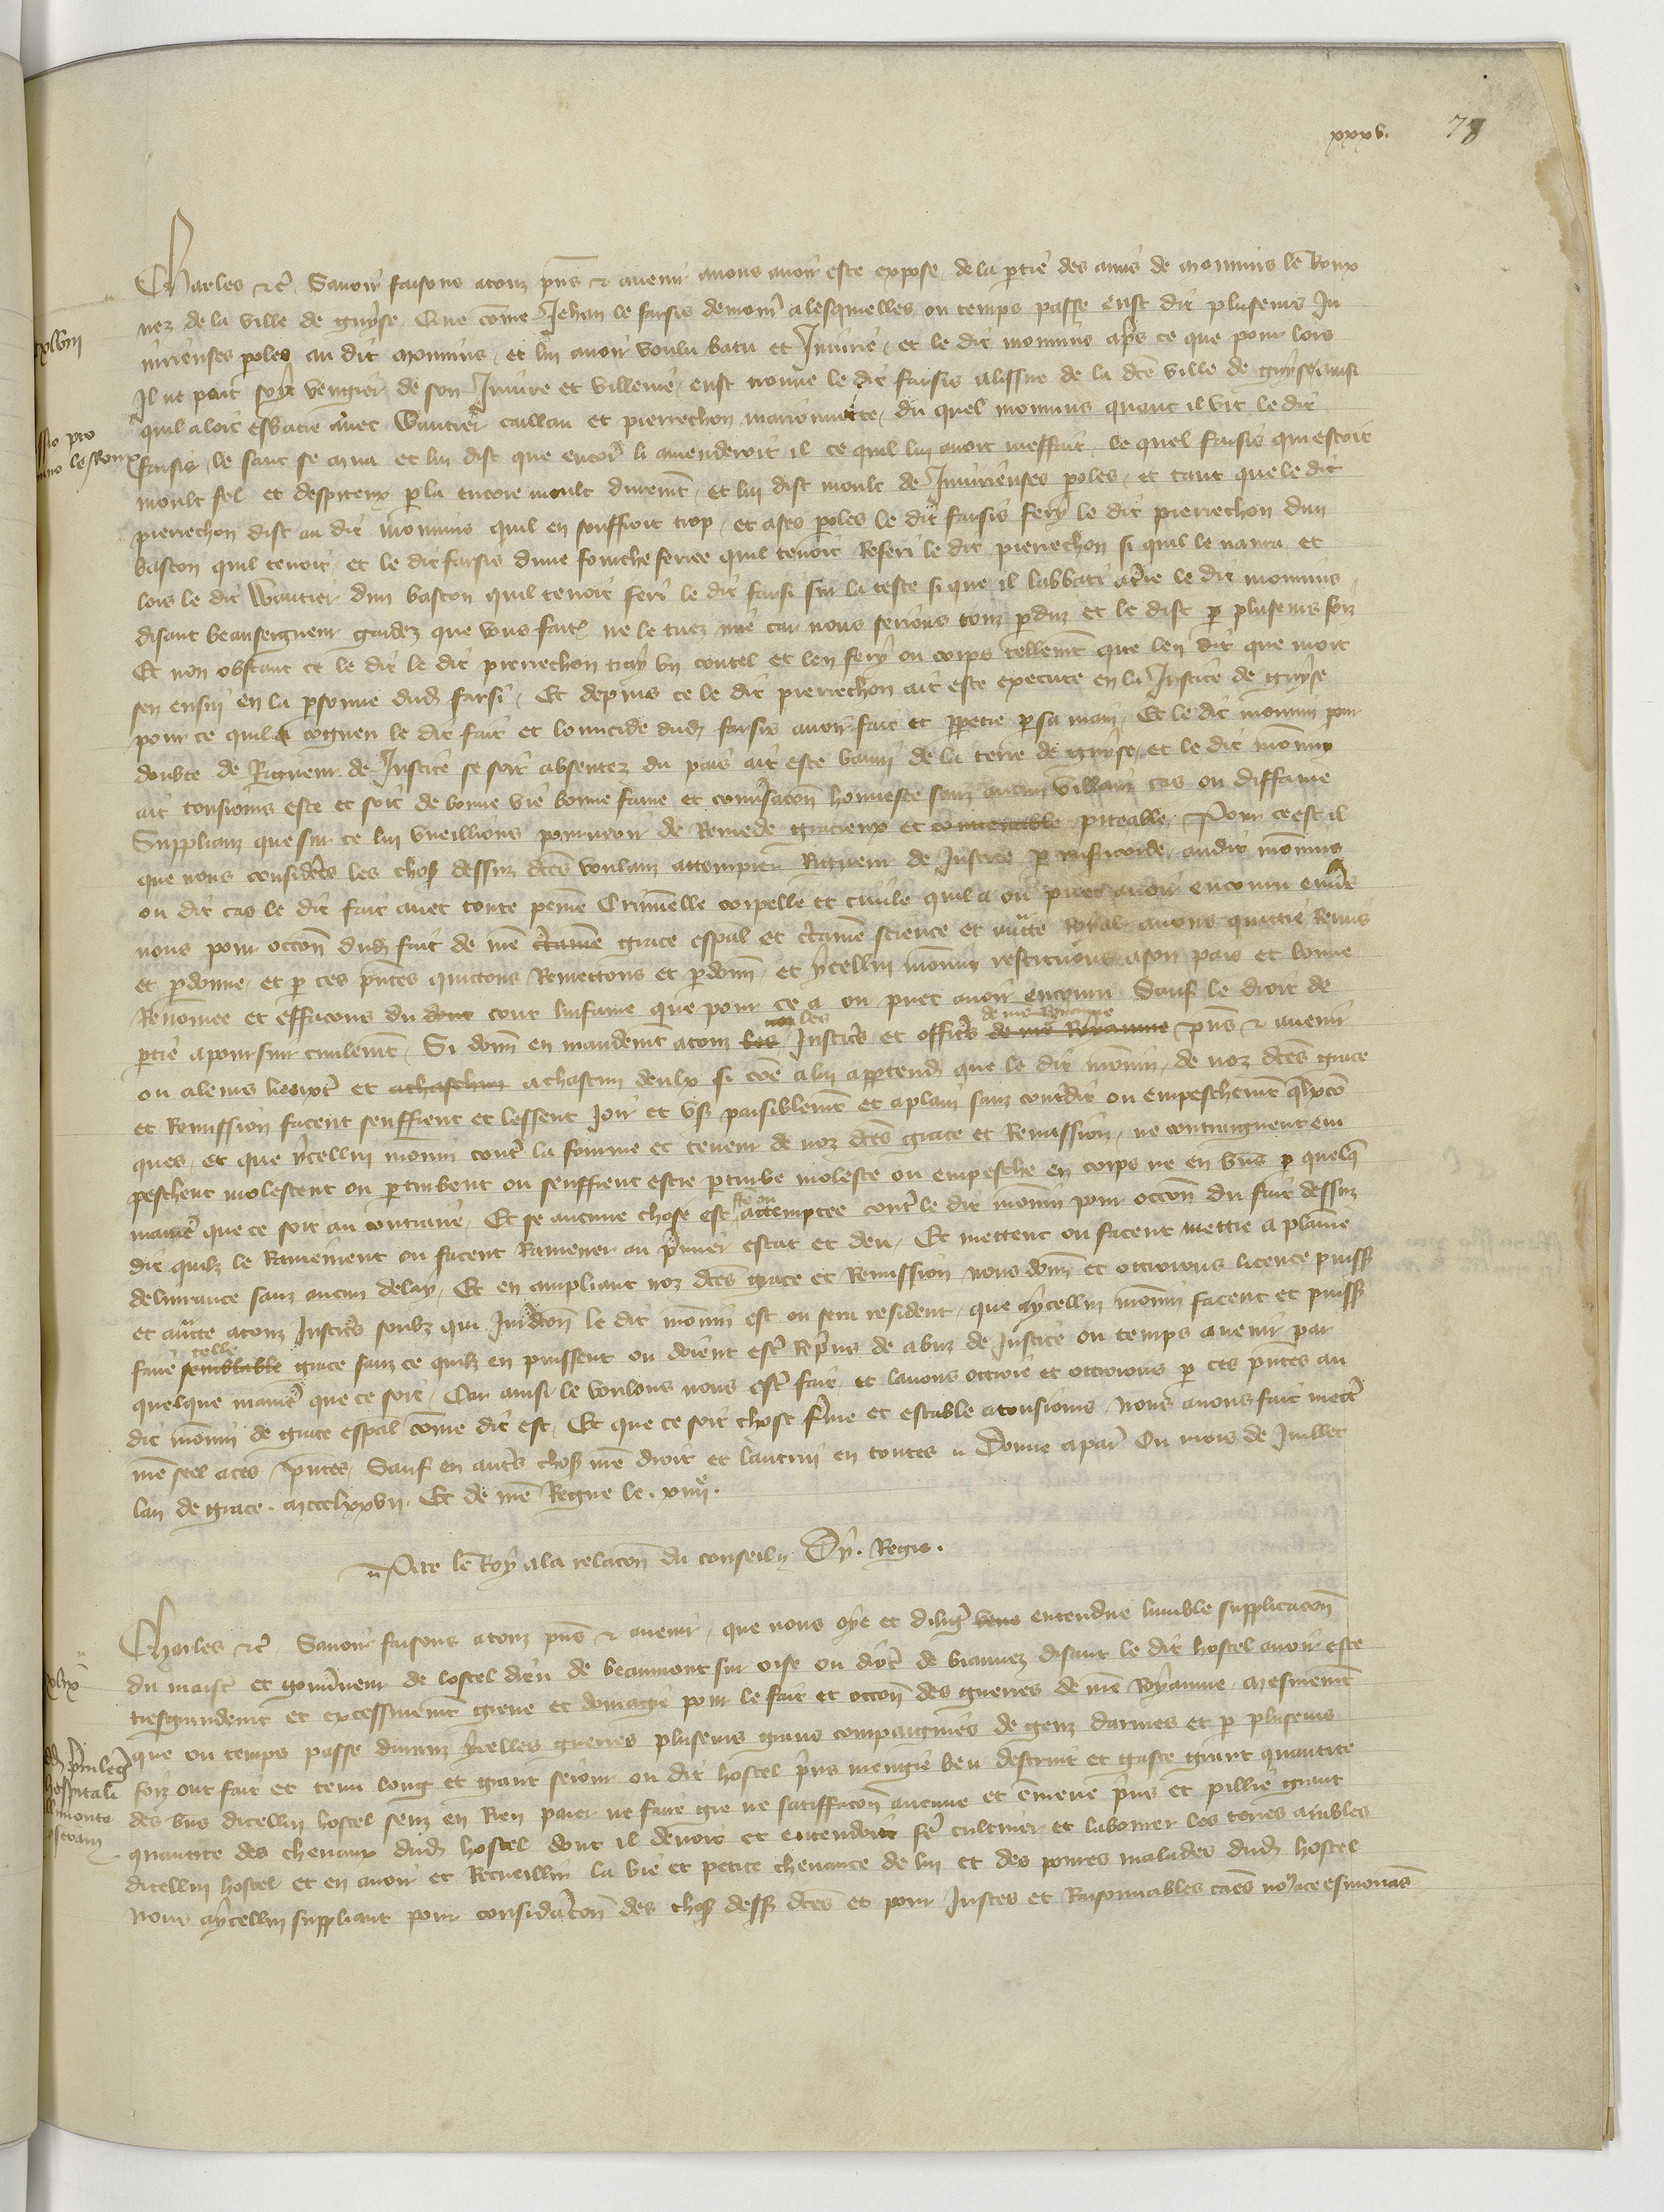 xxxv. 78
Charles etc̃. Savoir faisons a touz p̃ns et avenir nous avoir esté exposé de la p̃tie des amis de monnins le Roux
nez de la ville de guyse Que cõme Jehan le farsis demour̃ a lesquielles ou temps passe eust dit pluseurs In
iurieuses p̃oles au dit monnins et lui avoir voulu batu et Iniurié et le dit monnins ap̃s ce que pour lors
Il ne pout soy vengier de son Iniure et villenie eust trouve le dit farsis a lissue de la d̃te ville de guyse ainsi
quil aloit esbatre avec Wautier caillau et pierrechon marionnette du quel monnins quant il vit le dit
farsis le sanc se mua et lui dist que encor̃ li amenderoit il ce quil lui avoit meffait le quel farsis qui estoit
moult fel et despiteux p̃la encore moult durem̃t et lui dist moult de Iniurieuses p̃oles et tant que le dit
pierrechon dist au dit monnins quil en souffroit trop et a ses p̃oles le dit farsis fery le dit pierrechon dun
baston quil tenoit et le dit farsis dune fourche ferree quil tenoit Referi le dit pierrechon si quil le navra et
lors le dit Wautier dun baston quil tenoit feri le dit farsi sur la teste si que il labbati a t̃re le dit monnins
disant beauseigneur gardez que vous fait̃ ne le tuez mie car nous serions touz p̃duz et le dist p̃ pluseurs foiz
Et non obstant ce le dit le dit pierrechon tray un coutel et len fery ou corps tellem̃t que len dit que mort
sen ensui en la p̃sonne dud̃ farsi Et depuis ce le dit pierrechon ait esté executé en la Justice de guyse
pour ce quil a cogneu le dit fait et lomicide dud̃ farsis avoir fait et p̃petré p̃ sa main Et le dit monnin pour
doubte de Rigueur de Justice se soit absentez du païs ait esté banni de la terre de guyse et le dit monnin
ait tousiours esté et soit de bonne vie bonne fame et cõnṽsacõn honneste sanz aucun villain cas ou diffame
Supplianz que sur ce lui vueillions pourveoir de Remede gracieux et convenable piteable Pour ce est il
que nous considẽrs les chos̃ dessuz d̃tes voulanz attemprer Rigueur de Justice p̃ misericorde audit monnins
ou dit cas le dit fait avec toute peine Criminelle corpelle et civile quil a ou puet avoir encouru env̄s
nous pour occõn dud̃ fait de ñre c̃taine grace esp̃al et c̃taine science et auc̃te Royal avons quittié Remis
et p̃donné et p̃ ces p̃ntes quittons Remettons et p̃donñ et ycellui monnin restituons a son païs et bonne
Renommee et effaçons du dout tout linfame que pour ce a ou puet avoir encouru Sauf le droit de
p̃tie a poursuir civilem̃t Si donñ en mandem̃t a touz les noz les Justicĩs et officĩs de ñre Royaume de ñre Royaume p̃ns et avenir
ou a leurs lieuxt̃ et a chaschun a chascun deulx si cõe a lui app̃tend̃ que le dit monnin de noz d̃tes grace
et Remission facent seuffrent et lessent Joïr et us̃ paisiblem̃t et a plain sanz contredit ou empeschem̃t q̃lxcõ
ques et que ycellui monnin cont̃ la fourme et teneur de noz d̃tes grace et Remission ne contraignent em
peschent molestent ou p̃turbent ou seuffrent estre p̃turbé molesté ou empesche en corps ne en biens p̃ quelq̃
manie᷑ que ce soit au contraire Et se aucune chose est fte ou attemptee cont̃ le dit monnin pour occõn du fait dessuz
dit quilz le Ramainent ou facent Ramener au p̃mier estat et deu Et mettent ou facent mettre a plaine
delivrance sanz aucun delay Et en ampliant noz d̃tes grace et Remission nous donñ et ottroions licence puiss̃
et auc̃te a touz Justicĩs soubz qui Jurid̃cõn le dit monnin est ou sera resident que a ycellui monnin facent et puiss̃
faire semblable telle grace sanz ce quilz en puissent ou doient est̃ Rep̃ns de abuz de Justice ou temps avenir par
quelque manie᷑ que ce soit Car ainsi le voulons nous est̃ fait et lavons ottroié et ottroions p̃ ces p̃ntes au
dit monnin de grace esp̃al cõme dit est Et que ce soit chose f̃me et estable a tousiours nous avons fait mett̃
ñre seel a ces p̃ntes Sauf en aut̃s chos̃ ñre droit et lautrui en toutes Donné a par̃ Ou mois de Juillet
lan de grace mccclxxvii Et de ñre Regne le xiiii<sup>e</sup>.
Par le Roy a la relacõn du conseil Dy. Regis.
Charles etc̃ Savoir faisons a touz p̃ns et avenir que nous oye et dilig̃ veue entendue lumble supplicacõn
du maist̃ et gouv̄neur de lostel dieu de beaumont sur oise ou dioc̃ de biauvez disant le dit hostel avoir esté
tresgrandem̃t et excessivem̃t grevé et domagié pour le fait et occõn des guerres de ñre Royaume mesmem̃t
que ou temps passe duranz ycelles guerres pluseurs granz compaignies de genz darmes et p̃ pluseurs
foiz ont fait et tenu long et grant seiour ou dit hostel p̃ns mengié beu destruit et gasté grant quantité
des biens dicellui hostel senz en Rien paier ne faire gre ne satiffacõn aucune et emmené p̃ns et pillié grant
quantité des chevaux dud̃ hostel dont il devoit et entendoit f̃e cultiver et labourer les terres arables
dicellui hostel et en avoir et Recueillir la vie et petite chevance de lui et des povres malades dud̃ hostel
nous a ycellui suppliant pour considẽracõn des chos̃ dess̃ d̃tes et pour Justes et Raisonnables causes no⁹ a ce esmouvãs
xlviii
ssio pro
nno le Roux
xlix
p̃vileg̃
hospitali
llimonte
ysaram